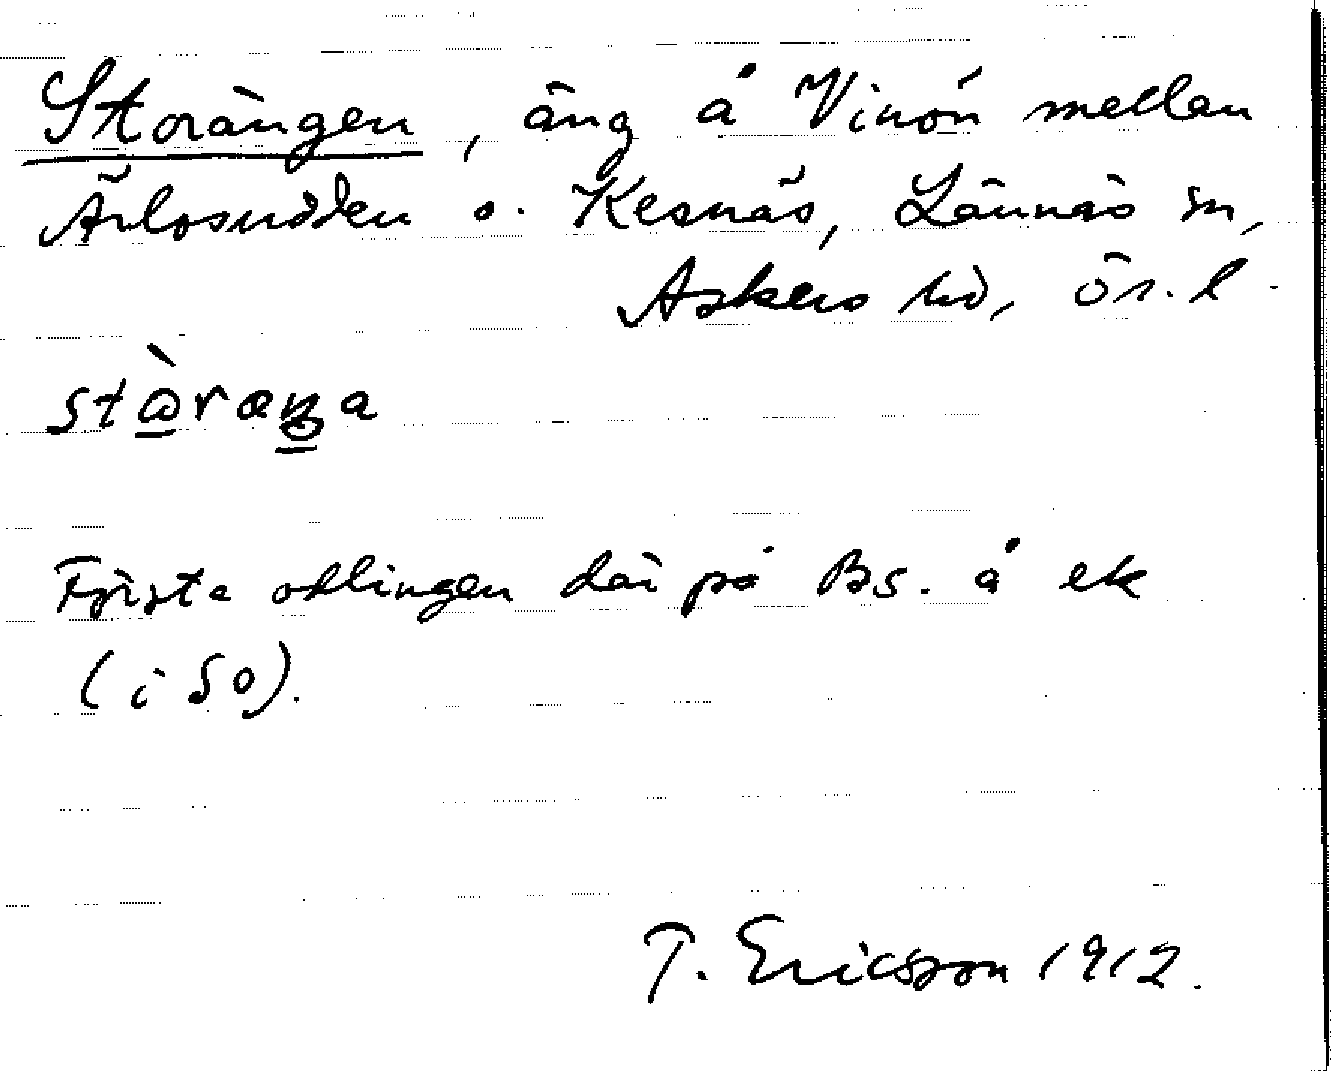 Storängen, äng å Vinön mellan
Ärlosudden o. Kesnäs, Lännäs sn,
Askers hd, ör. l.
stàræŋa
Första odlingen där på Bs. å ek
(i So).
T. Ericsson 1912.